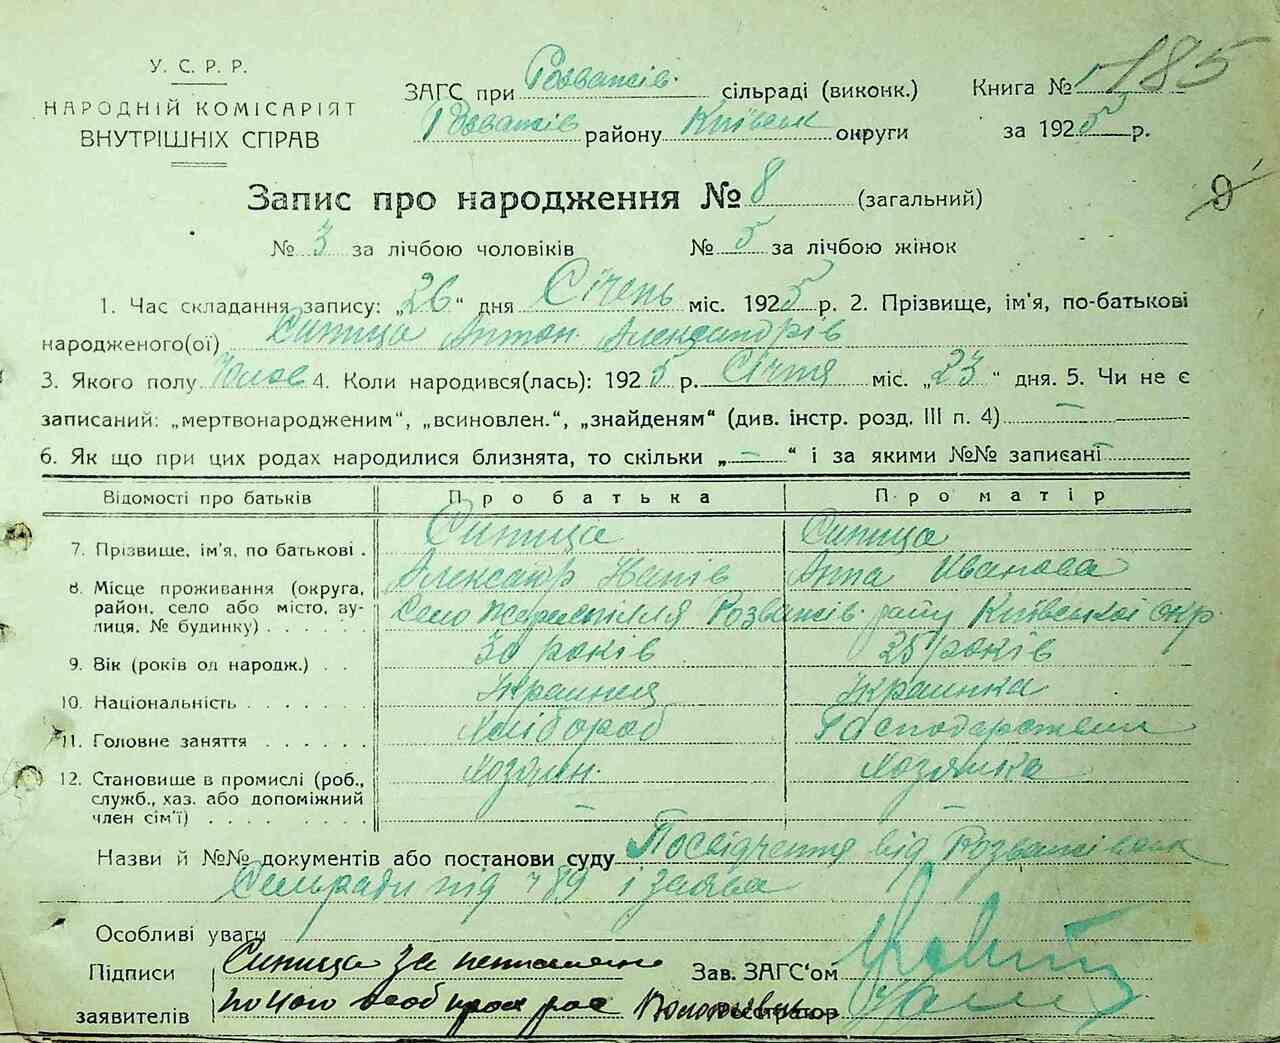 У. С. Р. Р.
НАРОДНІЙ КОМІСАРІЯТ
ВНУТРІШНІХ СПРАВ
ЗАГС при Розважів. сільраді (виконк.)
Розважів району Київськ округи
Книга № 1 185
за 1925 р.
Запис про народження № 8 (загальний)
№ 3 за лічбою чоловіків № 5 за лічбою жінок
1. Час складання запису: „26“ дня Січень міс. 1925 р. 2. Прізвище, ім'я, по-батькові
народженого(ої) Синица Антон Александрів
3. Якого полу Чолов 4. Коли народився(лась): 1925 р. Січня міс. „23“ дня. 5. Чи не є
записаний: „мертвонародженим“, „всиновлен.“, „знайденям“ (див. інстр. розд. III п. 4) —
6. Як що при цих родах народилися близнята, то скільки „—“ і за якими №№ записані
Відомості про батьків Про батька Про матір
7. Прізвище, ім'я, по батькові . Синица Синица
Александр Іванів Анна Иванова
8. Місце проживання (округа, район, село або місто, вулиця, № будинку) Село Розважів. райу Київської окр.
9. Вік (років од народж.) 30 років 25 років
10. Національність Украинец Украинка
11. Головне заняття Хлібороб Господарством
12. Становище в промислі (роб., служб., хаз. або допоміжний член сім'ї) Хозяин. Хозяйка
Назви й №№ документів або постанови суду Посвідчення від Розважівськ
Сельради під 489 і заява
Особливі уваги
Підписи заявителів Синица за
Зав. ЗАГС'ом
Реєстратор